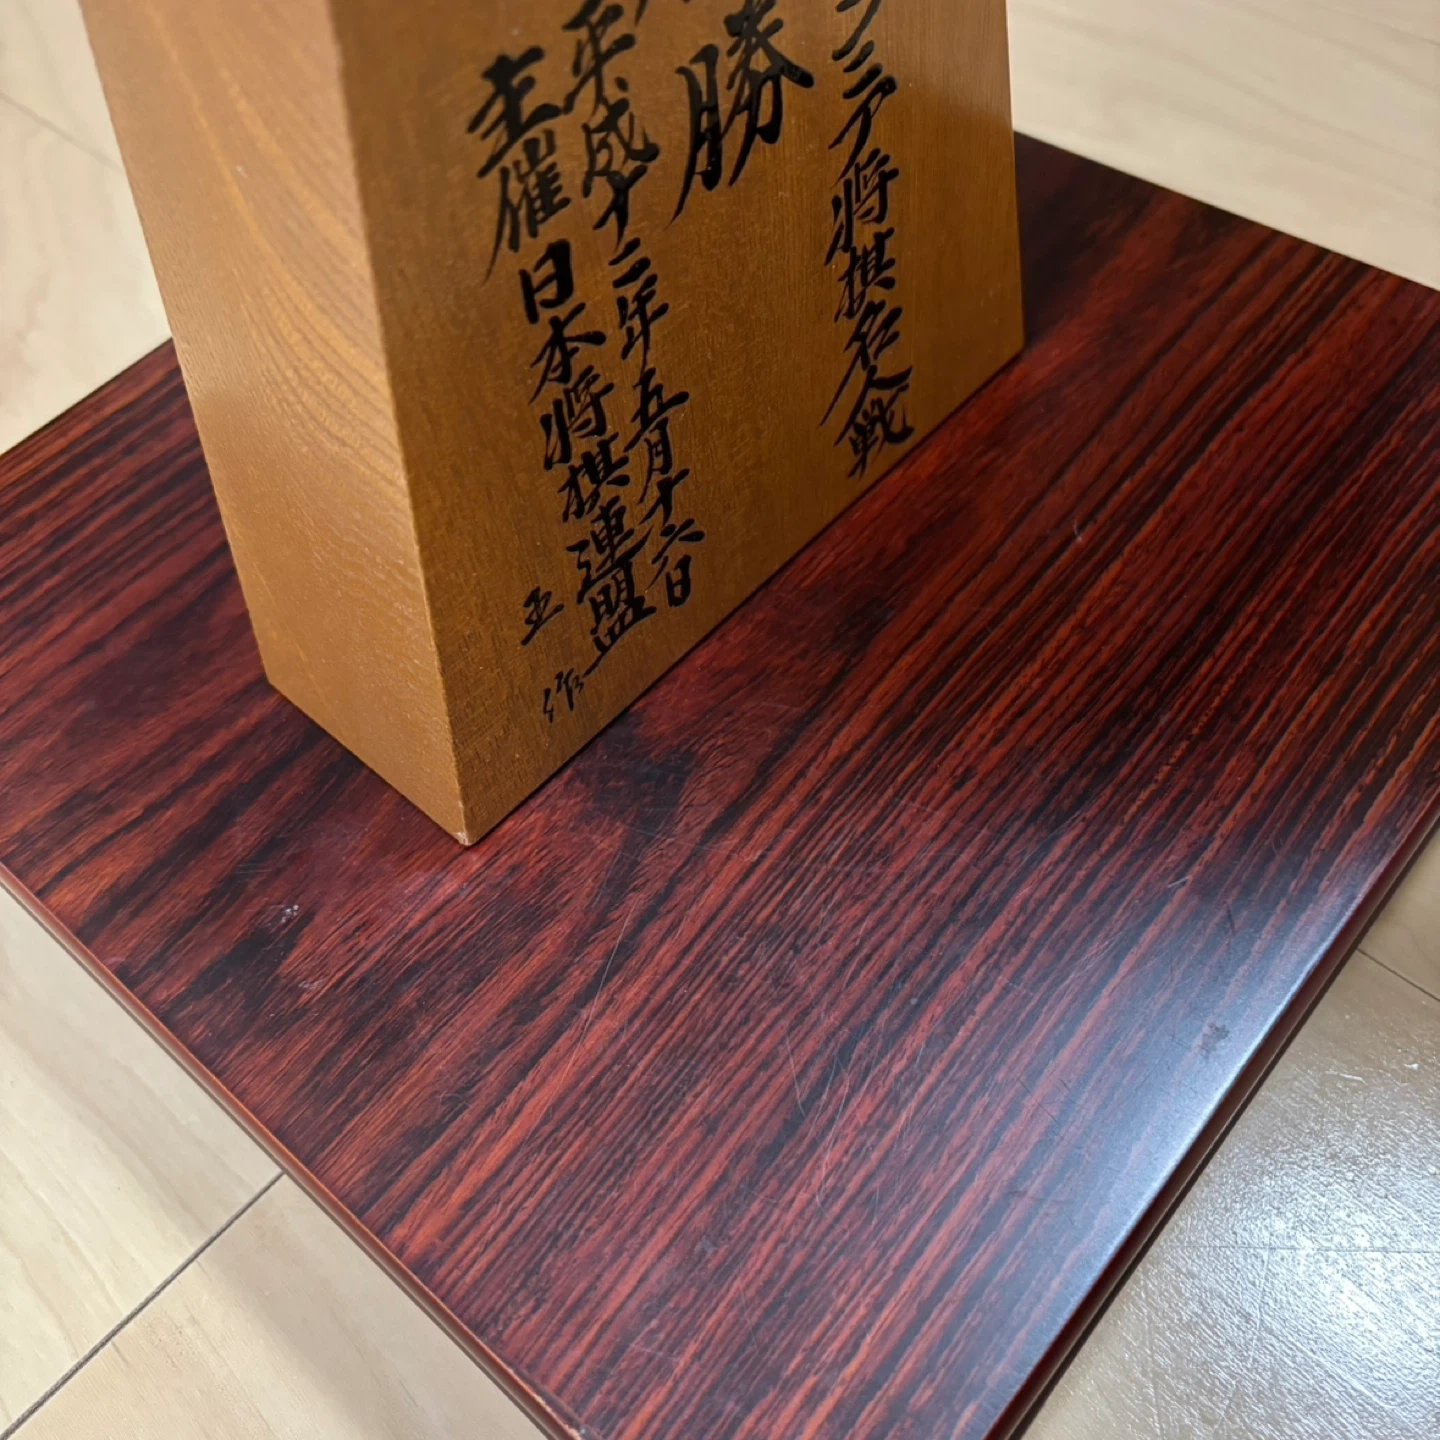 ニア将棋名人戦
勝
平成十二年五月十六日
主催日本将棋連盟
作